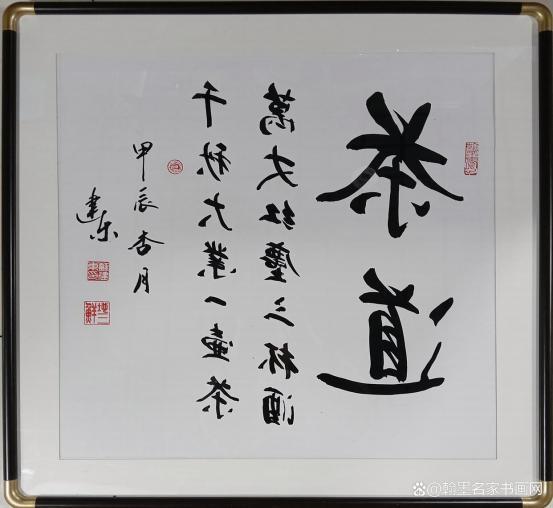 茶道
萬丈红塵三杯酒
千秋大業一壶茶
甲辰杏月
建
@翰墨名家书画网